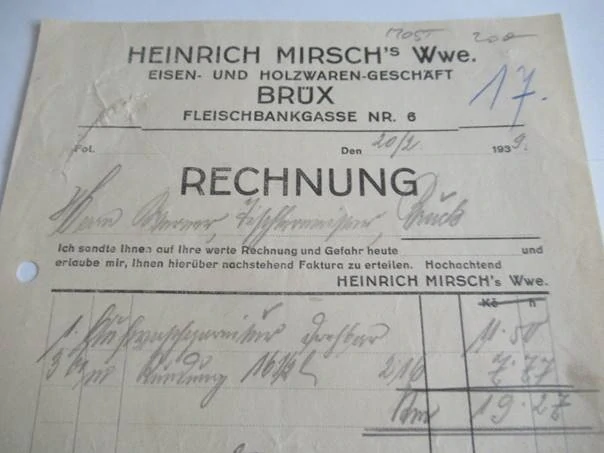 MOST 200
HEINRICH MIRSCH's Wwe.
EISEN- UND HOLZWAREN-GESCHÄFT
BRÜX
17.
FLEISCHBANKGASSE NR. 6
Fol. Den 20/2. 1939.
RECHNUNG
Herrn Werner, Tischlermeister, Brück
Ich sandte Ihnen auf Ihre werte Rechnung und Gefahr heute und
erlaube mir, Ihnen hierüber nachstehend Faktura zu erteilen. Hochachtend
HEINRICH MIRSCH's Wwe.
Kč h
1. drehbar 11.50
3 16½ 2/16 7.77
19.27